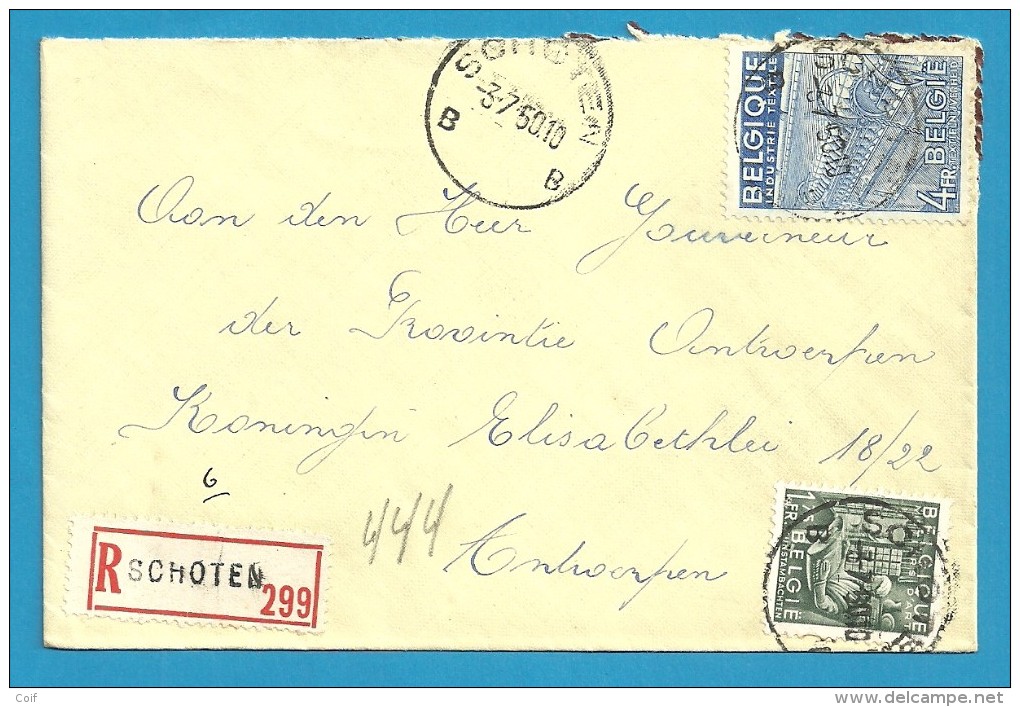 SCHOTEN 2
-3-7 50.10
B B
BELGIQUE
INDUSTRIE TEXTILE
4FR.
BELGIË
TEXTIELNIJVERHEID
Aan den Heer Gouverneur
der Provintie Antwerpen
Koningin Elisabethlei 18/22
6
444
Antwerpen
R SCHOTEN
299
1FR.
BELGIË
KUNSTAMBACHTEN
BELGIQUE
Coif
www.delcampe.net